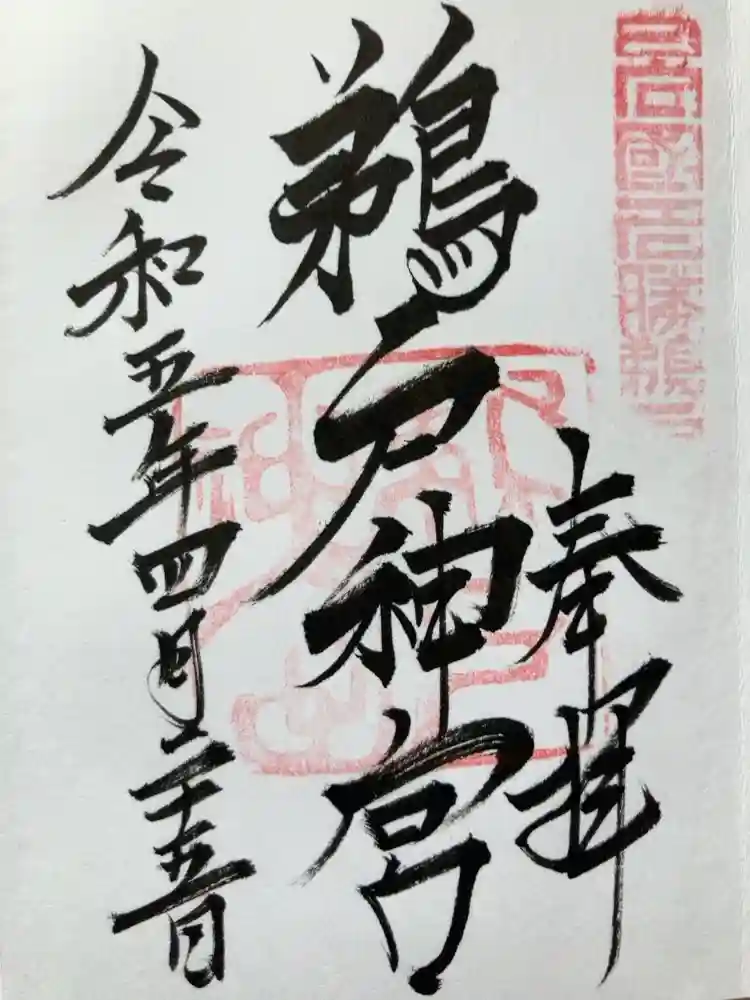 奉拝
鵜戸神宮
令和五年四月二十五日